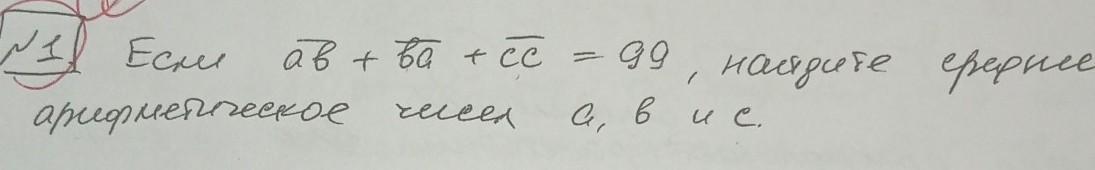 №1 Если ab̅ + ba̅ + cc̅ = 99, найдите среднее
арифметическое чисел a, b и c.